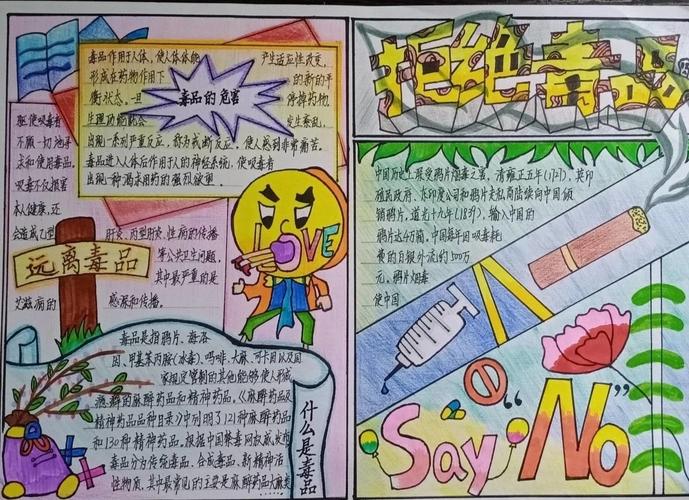 毒品作用于人体，使人体体能 产生适应性改变，
形成在药物作用下 的新的平
衡状态。一旦 停掉药物
生理功能就会 发生紊乱，
出现一系列严重反应，称为戒断反应，使人感到非常痛苦。
毒品进入人体后作用于人的神经系统，使吸毒者
出现一种渴求用药的强烈欲望，
毒品的危害
驱使吸毒者
不顾一切地寻
求和使用毒品。
吸毒不仅损害
本人健康，还
会造成乙型 肝炎、丙型肝炎、性病的传播
等公共卫生问题，
其中最严重的是
艾滋病的 感染和传播。
远离毒品
LOVE
毒品是指鸦片、海洛
因、甲基苯丙胺(冰毒)、吗啡、大麻、可卡因以及国
家规定管制的其他能够使人形成
瘾癖的麻醉药品和精神药品。《麻醉药品及
精神药品品种目录》中列明了121种麻醉药品
和130种精神药品。根据中国禁毒网权威发布
毒品分为传统毒品、合成毒品、新精神活
性物质，其中最常见的主要是麻醉药品大麻类
什么是毒品
拒绝毒品
中国历史上深受鸦片烟毒之害，清雍正五年(1727)，英印
殖民政府、东印度公司和鸦片走私商陆续向中国倾
销鸦片，道光十九年(1839)，输入中国的
鸦片达4万箱。中国每年因吸毒耗
费的白银外流约500万
元。鸦片烟毒
使中国
Say "No"